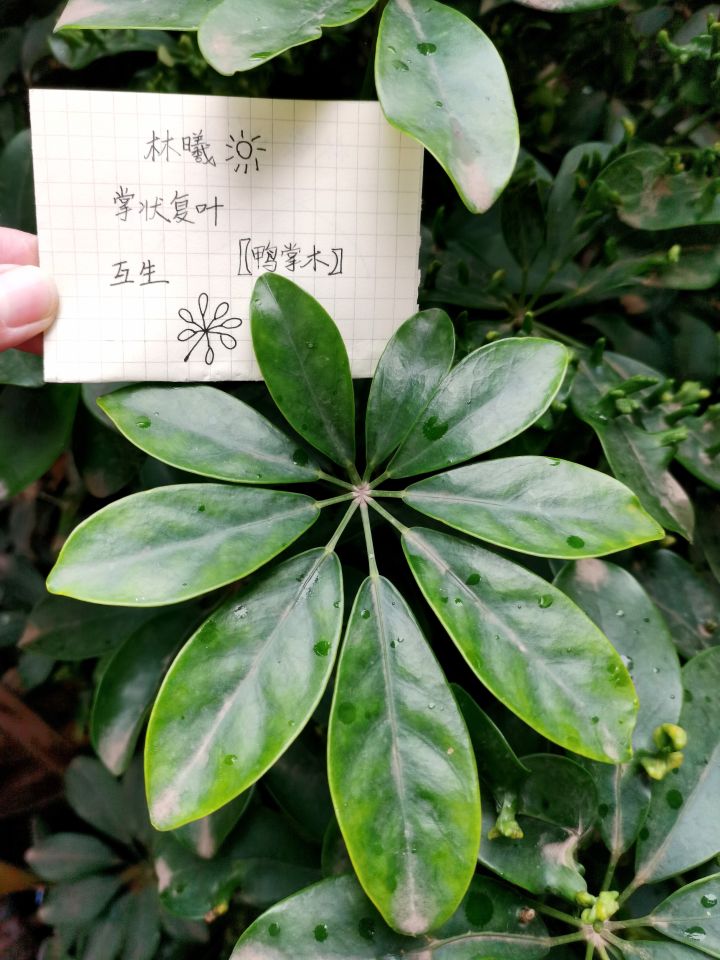 林曦
掌状复叶
互生
〖鸭掌木〗